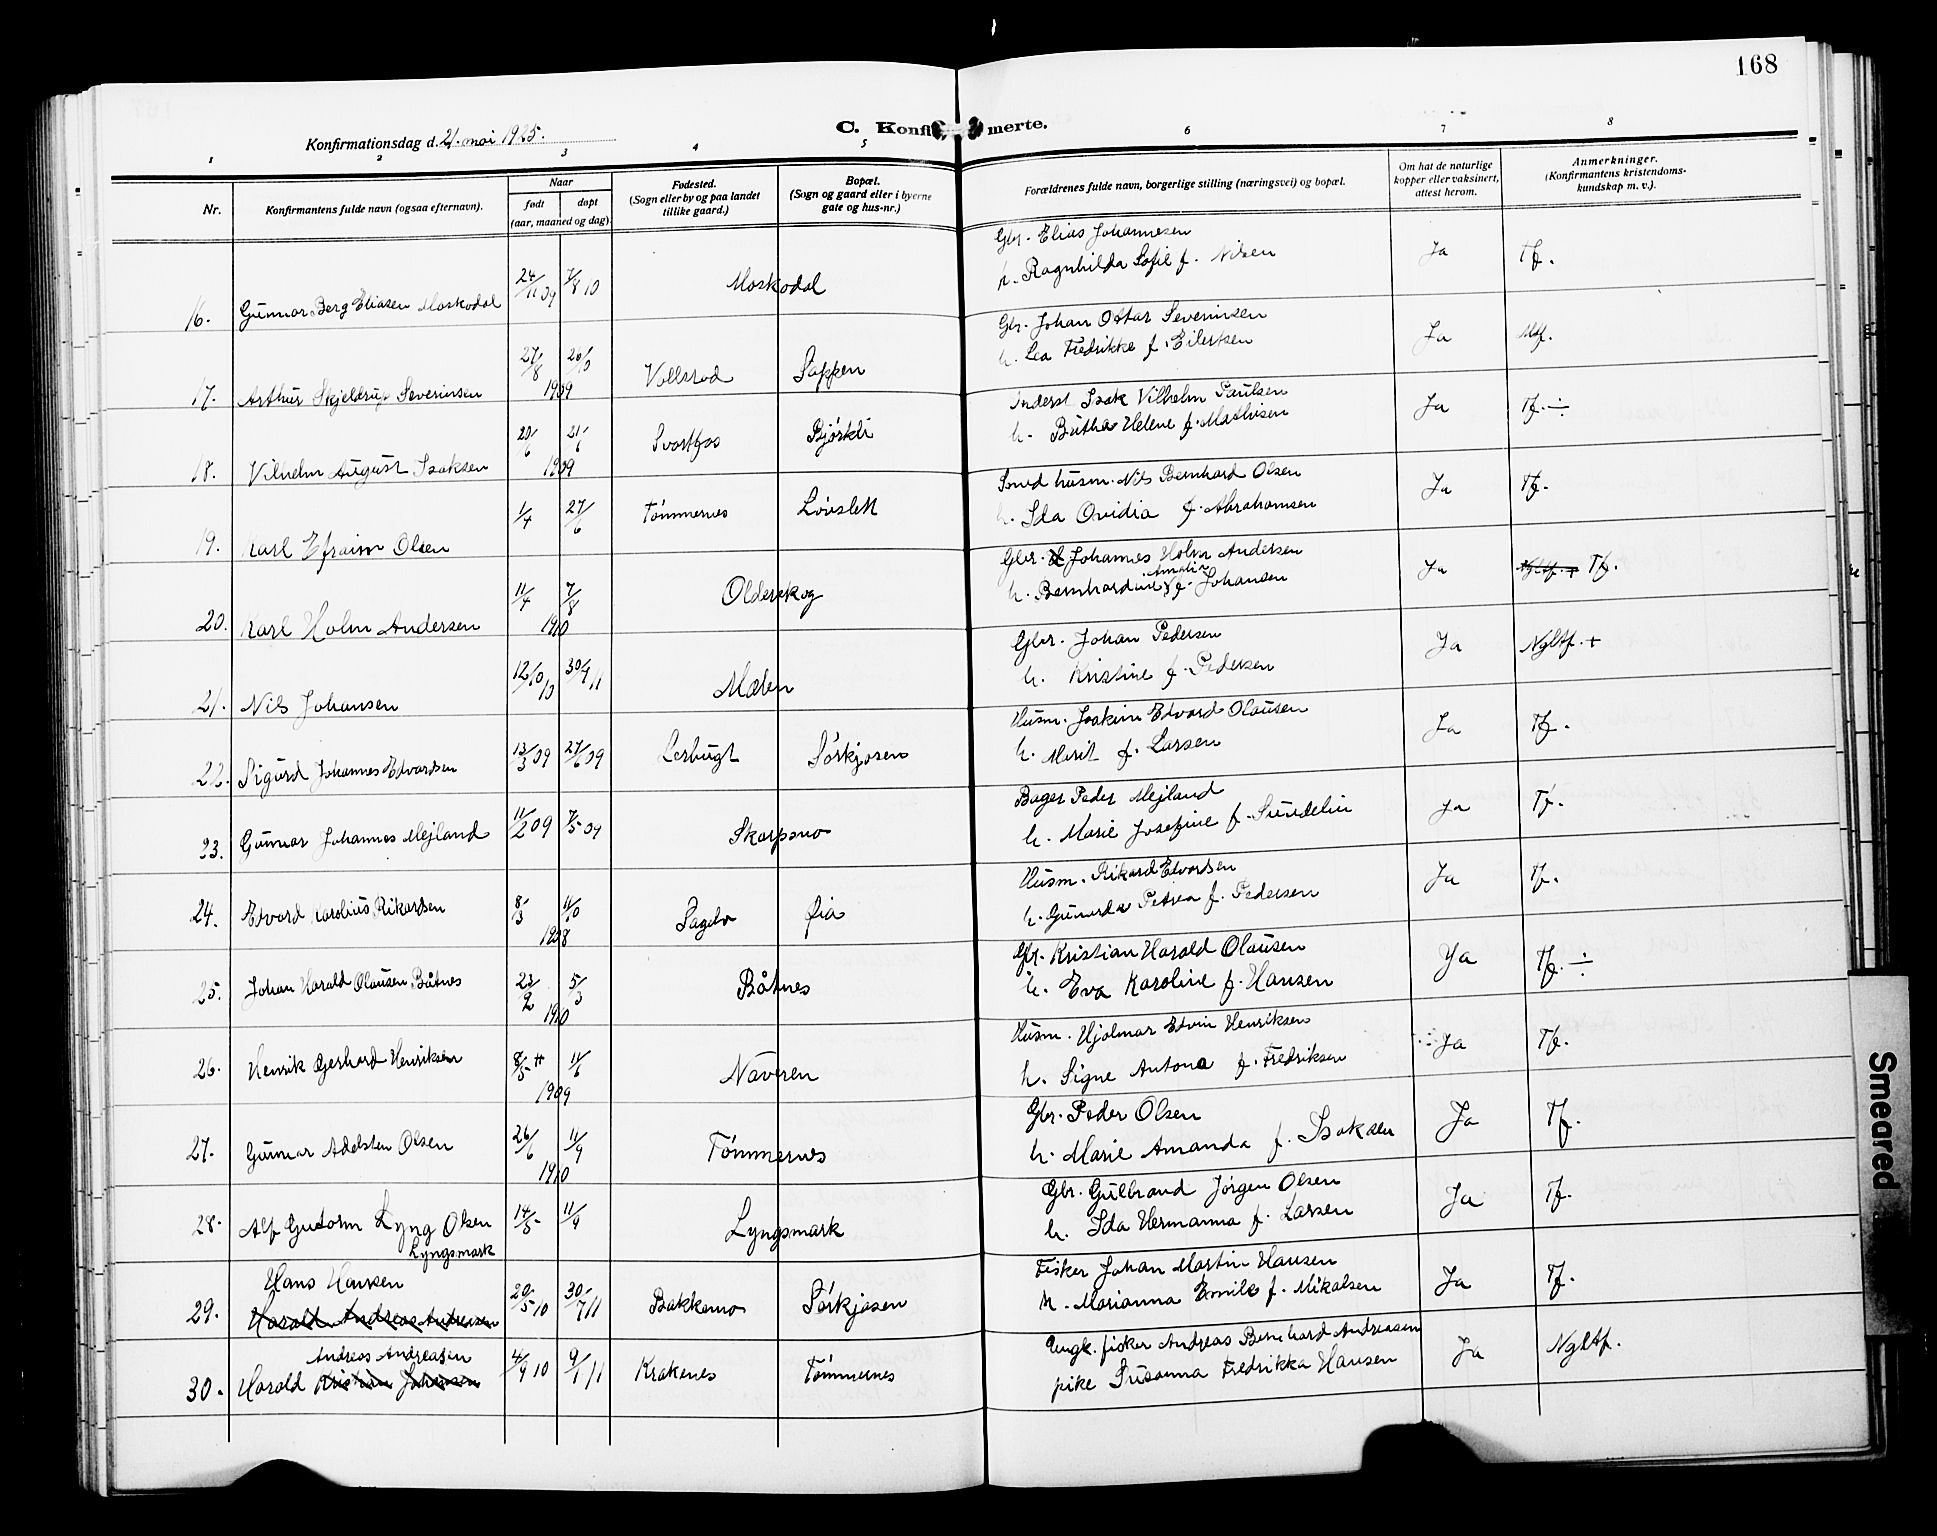 168
C. Konfirmerte.
Konfirmationsdag d. 21. mai 1925.
1 2 3 4 5 6 7 8
Nr.
Konfirmantens fulde navn (ogsaa efternavn).
Naar
født døpt
(aar, maaned og dag)
Fødested.
(Sogn eller by og paa landet
tillike gaard.)
Bopæl.
(Sogn og gaard eller i byerne
gate og hus-nr.)
Forældrenes fulde navn, borgerlige stilling (næringsvei) og bopæl.
Om hat de naturlige
kopper eller vaksinert,
attest herom.
Anmerkninger.
(Konfirmantens kristendoms-
kundskap m. v.).
Gbr. Elias Johannesen
16. Gunnar Berg Eliasen Moskodal 24/11 09 7/8 10 Moskodal h. Ragnhilda Sofie f. Nilsen Ja Tf.
Gbr. Johan Ottar Severinsen
17. Arthur Skjeldrup Severinsen 27/8 26/10 1909 Vollstad Sappen h. Lea Fredrikke f. Eilertsen Ja Mtf.
Inderst Isak Vilhelm Paulsen
18. Vilhelm August Isaksen 20/6 21/6 1909 Svartfos Bjørkli h. Helene f. Mathisen Ja Tf. ÷
Smed husm. Nils Bernhard Olsen
19. Karl Efraim Olsen 1/4 27/6 Tømmernes Løvslett h. Ida Ovidia f. Abrahamsen Ja Tf.
Gbr. Johannes Holm Andersen
20. Karl Holm Andersen 11/4 7/8 1910 Olderskog h. Bernhardine Amalie f. Johansen Ja Tf.
Gbr. Johan Pedersen
21. Nils Johansen 12/10 10 30/4 11 Mælen h. Kristine f. Pedersen Ja Ngltf. +
Husm. Joakim Edvard Olausen
22. Sigurd Johannes Edvardsen 13/3 09 27/6 09 Lerbugt Sørkjosen h. Marit f. Larsen Ja Tf.
Bager Peder Mejland
23. Gunnar Johannes Mejland 11/2 09 7/5 09 Skarpsno h. Marie Josefine f. Sundelin Ja Tf.
Husm. Rikard Edvardsen
24. Edvard Karolius Rikardsen 8/3 11/10 1908 Sagelv Øia h. Petra f. Pedersen Ja Tf.
Gbr. Kristian Harald Olausen
25. Johan Harald Olausen Båtnes 23/2 5/3 1910 Båtnes h. Eva Karoline f. Hansen Ja Tf. ÷
Husm. Hjalmar Edvin Henriksen
26. Henrik Gerhard Henriksen 8/5 11/6 1909 Naveren h. Signe Antona f. Fredriksen Ja Tf.
Gbr. Peder Olsen
27. Gunnar Adelsten Olsen 26/6 11/9 1910 Tømmernes h. Marie Amanda f. Isaksen Ja Tf.
Gbr. Gulbrand Jørgen Olsen
28. Alf Gudorm Lyng Olsen 14/5 11/9 Lyngsmark h. Ida Hermanna f. Larsen Ja Tf.
Lyngsmark
Hans Hansen Fisker Johan Martin Hansen
29. Harald Andreas Andreasen 20/5 10 30/7 11 Bakkemo Sørkjosen h. Marianna Emile f. Mikalsen Ja Tf.
Andreas Andreasen Ungk. fisker Andreas Bernhard Andreasen
30. Harald Kristian Johansen 4/9 10 9/1 11 Krakenes Tømmernes pike Susanna Fredrikka Hansen Ja Ngltf.
Smeared